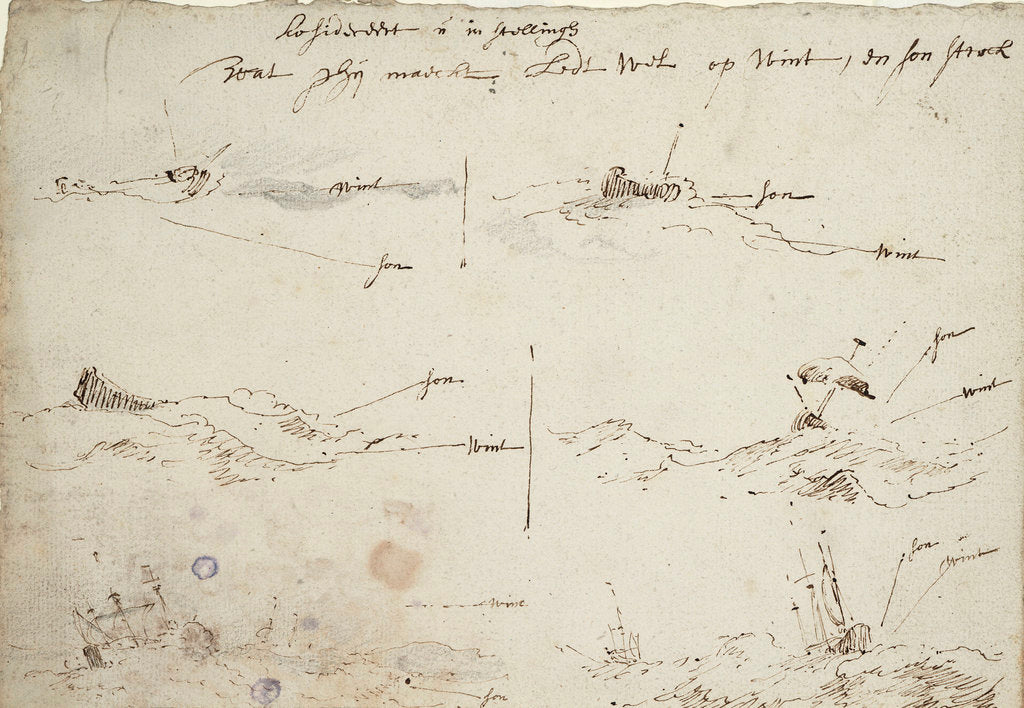 Cosidereert ū in stellingh
Wat ghij maeckt Ledt Wel op Wint, en son streck
Wint
son
son
Wint
son
Wint
son
Wint
son
Wint
Wint
son